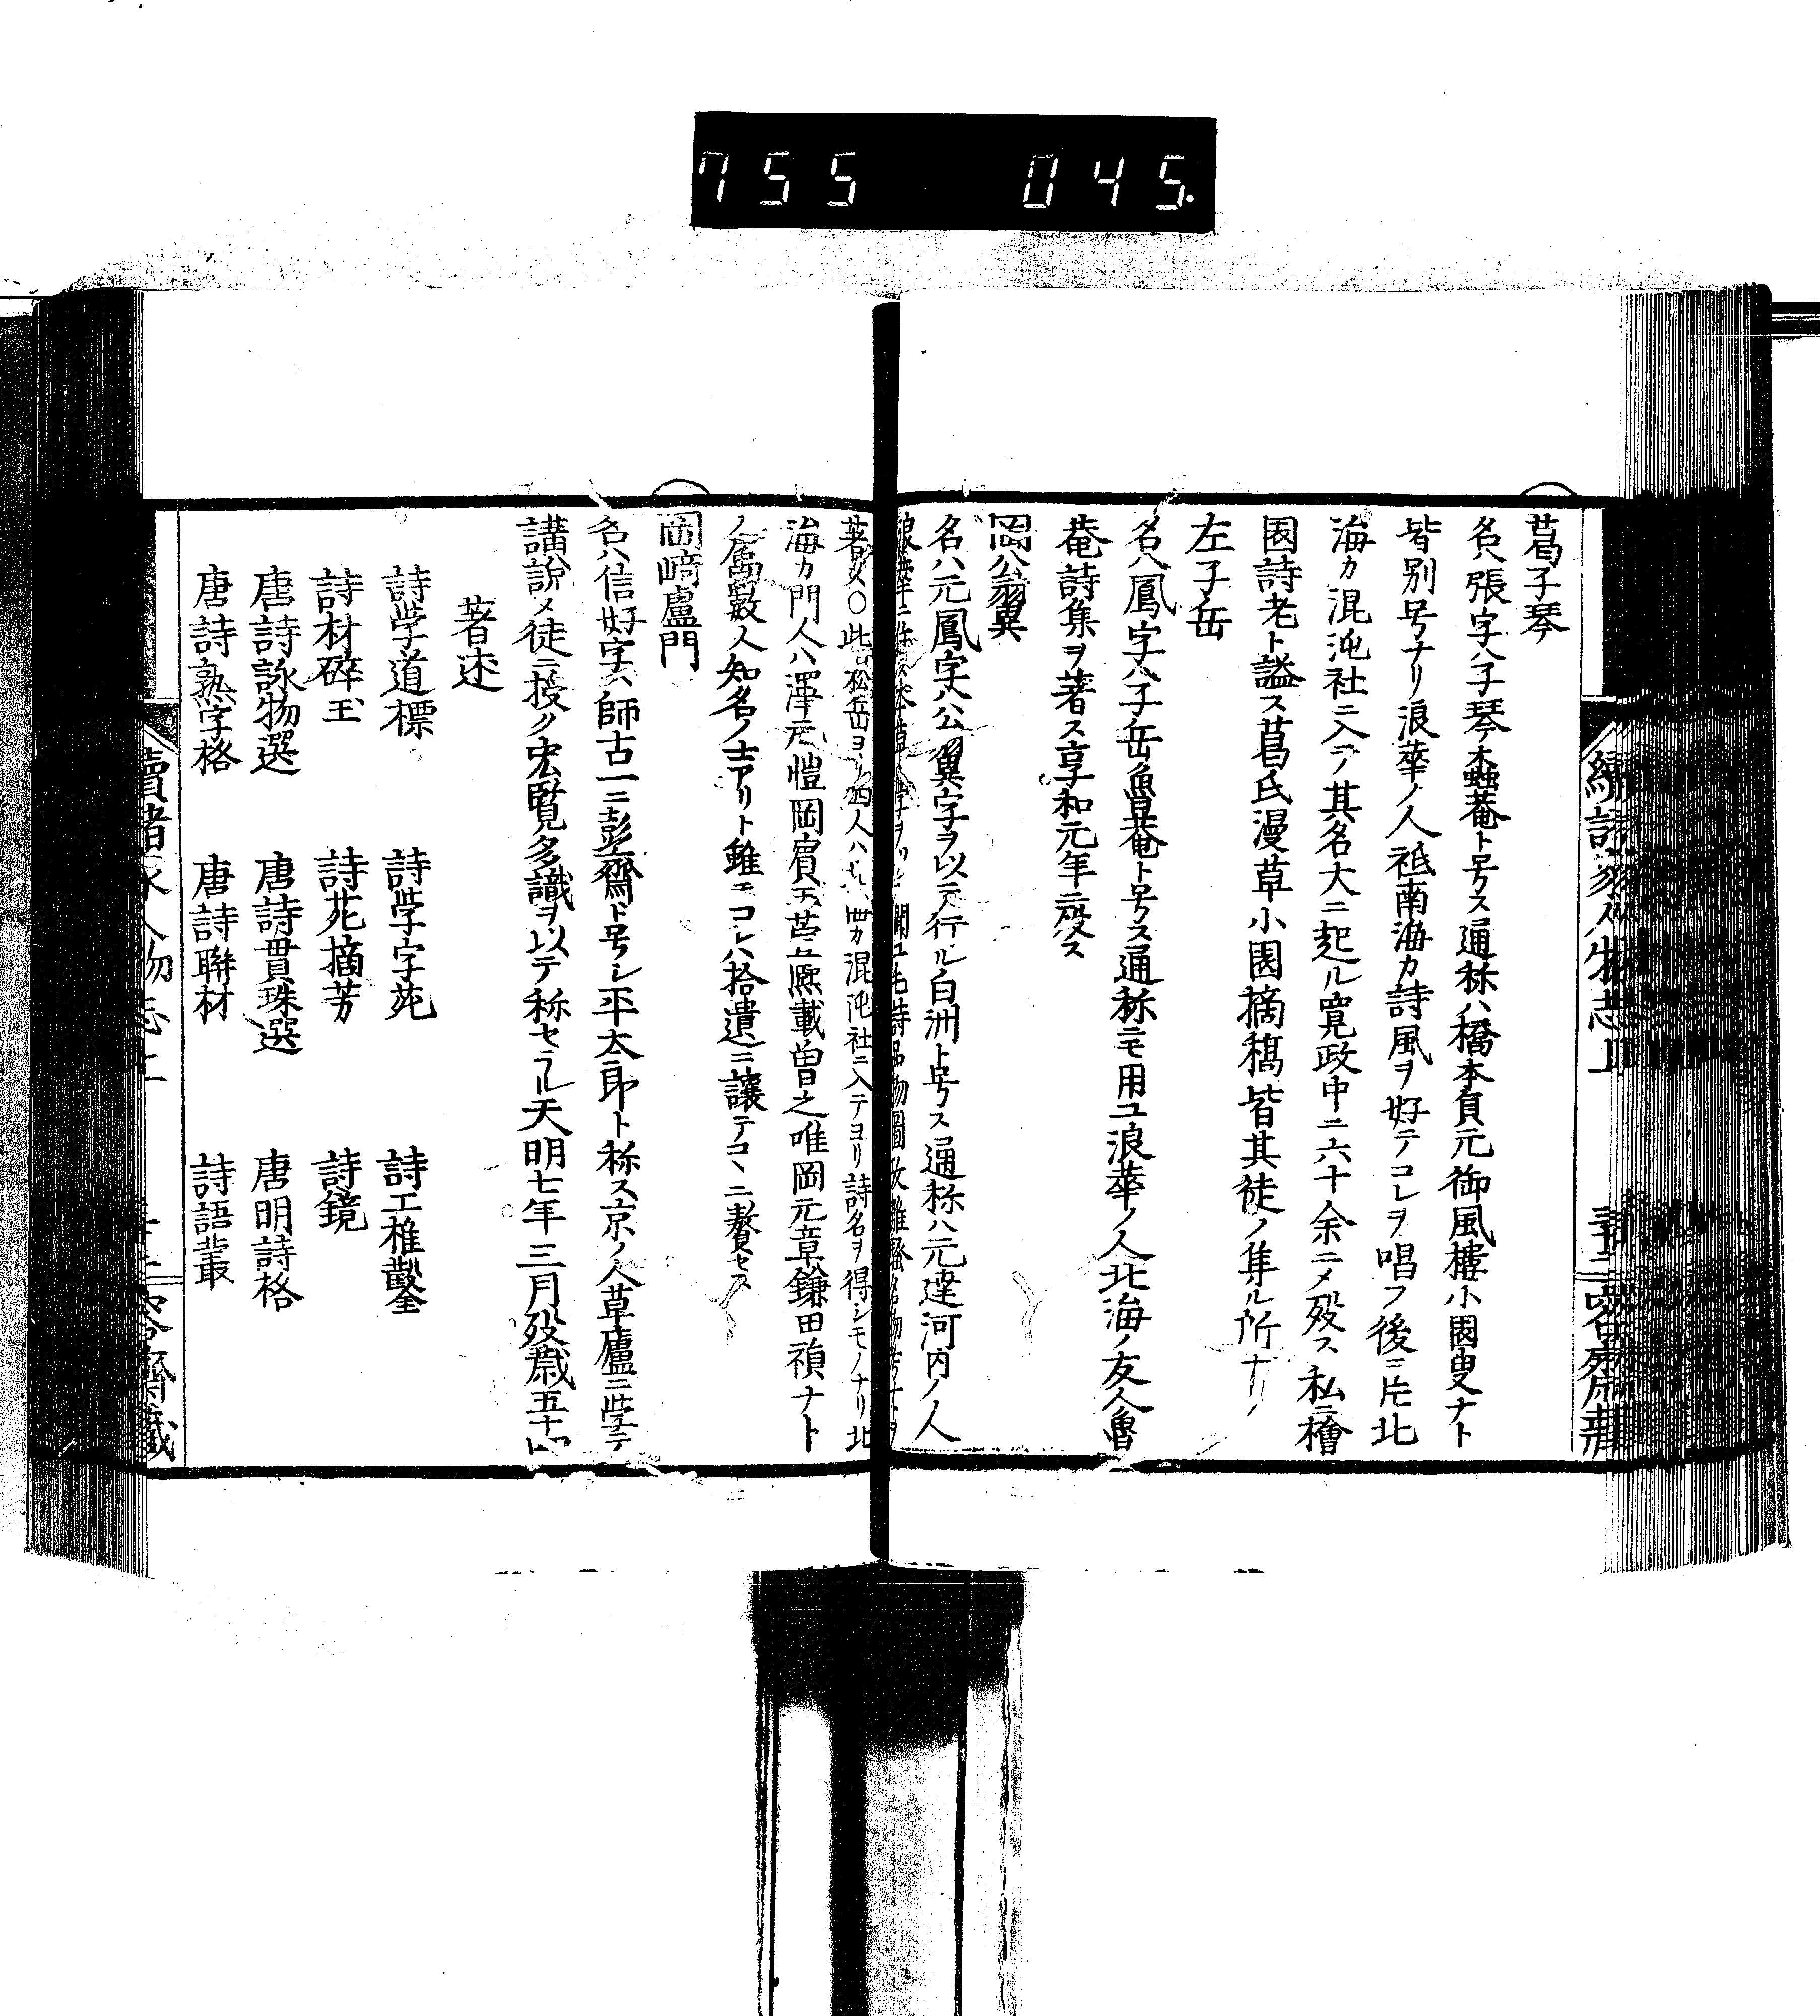 755 045.
葛子琴
名ハ張字ハ子琴蠧菴ト号ス通称ハ橋本貞元御風樓小園叟ナト
皆別号ナリ浪華ノ人祗南海カ詩風ヲ好テコレヲ唱フ後ニ片北
海カ混沌社ニ入テ其名大ニ起ル寛政中ニ六十余ニメ歿ス私ニ檜
園詩老ト謚ス葛氏漫草小園摘稿皆其徒ノ集ル所ナリ
左子岳
名ハ鳳字ハ子岳魯菴ト号ス通称ニモ用ユ浪華ノ人北海ノ友人魯
菴詩集ヲ著ス享和元年ニ歿ス
岡公翼
名ハ元鳳字ハ公翼字ヲ以テ行ル白洲ト号ス通称ハ元達河内ノ人
浪華ニ住
著ス〇此松岳ヨリ四人ハ北海カ混沌社ニ入テヨリ詩名ヲ得シモノナリ北
海カ門人ハ澤元愷岡賓王葛熈載曽之唯岡元章鎌田禎ナト
ノ属數人知名ノ士アリト雖モコレハ拾遺ニ讓テコヽニ贅セス
岡﨑盧門
名ハ信好字ハ師古一ニ彭齋ト号シ平太郎ト称ス京ノ人草廬ニ学テ
講說メ徒ニ授ク宏覧多識ヲ以テ称セラル天明七年三月歿歳五十四
著述
詩学道標 詩学字苑 詩工椎鑿
詩材碎玉 詩苑摘芳 詩鏡
唐詩詠物選 唐詩貫珠選 唐明詩格
唐詩熟字格 唐詩聯材 詩語叢